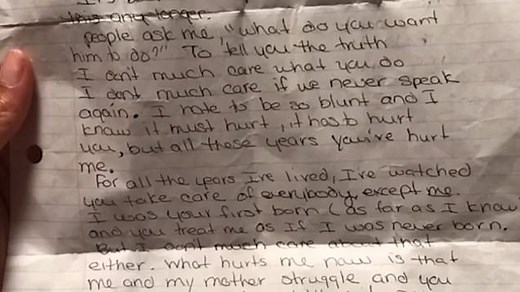 this any longer.
people ask me, "what do you want
him to do?" To tell you the truth
I don't much care what you do
I dont much care if we never speak
again. I hate to be so blunt and I
know it must hurt, it has to hurt
you, but all these years you've hurt
me.
For all the years I've lived, I've watched
you take care of everybody, except me.
I was your first born (as far as I know
and you treat me as if I was never born.
But I don't much care about that
either. What hurts me now is that
me and my mother struggle and you